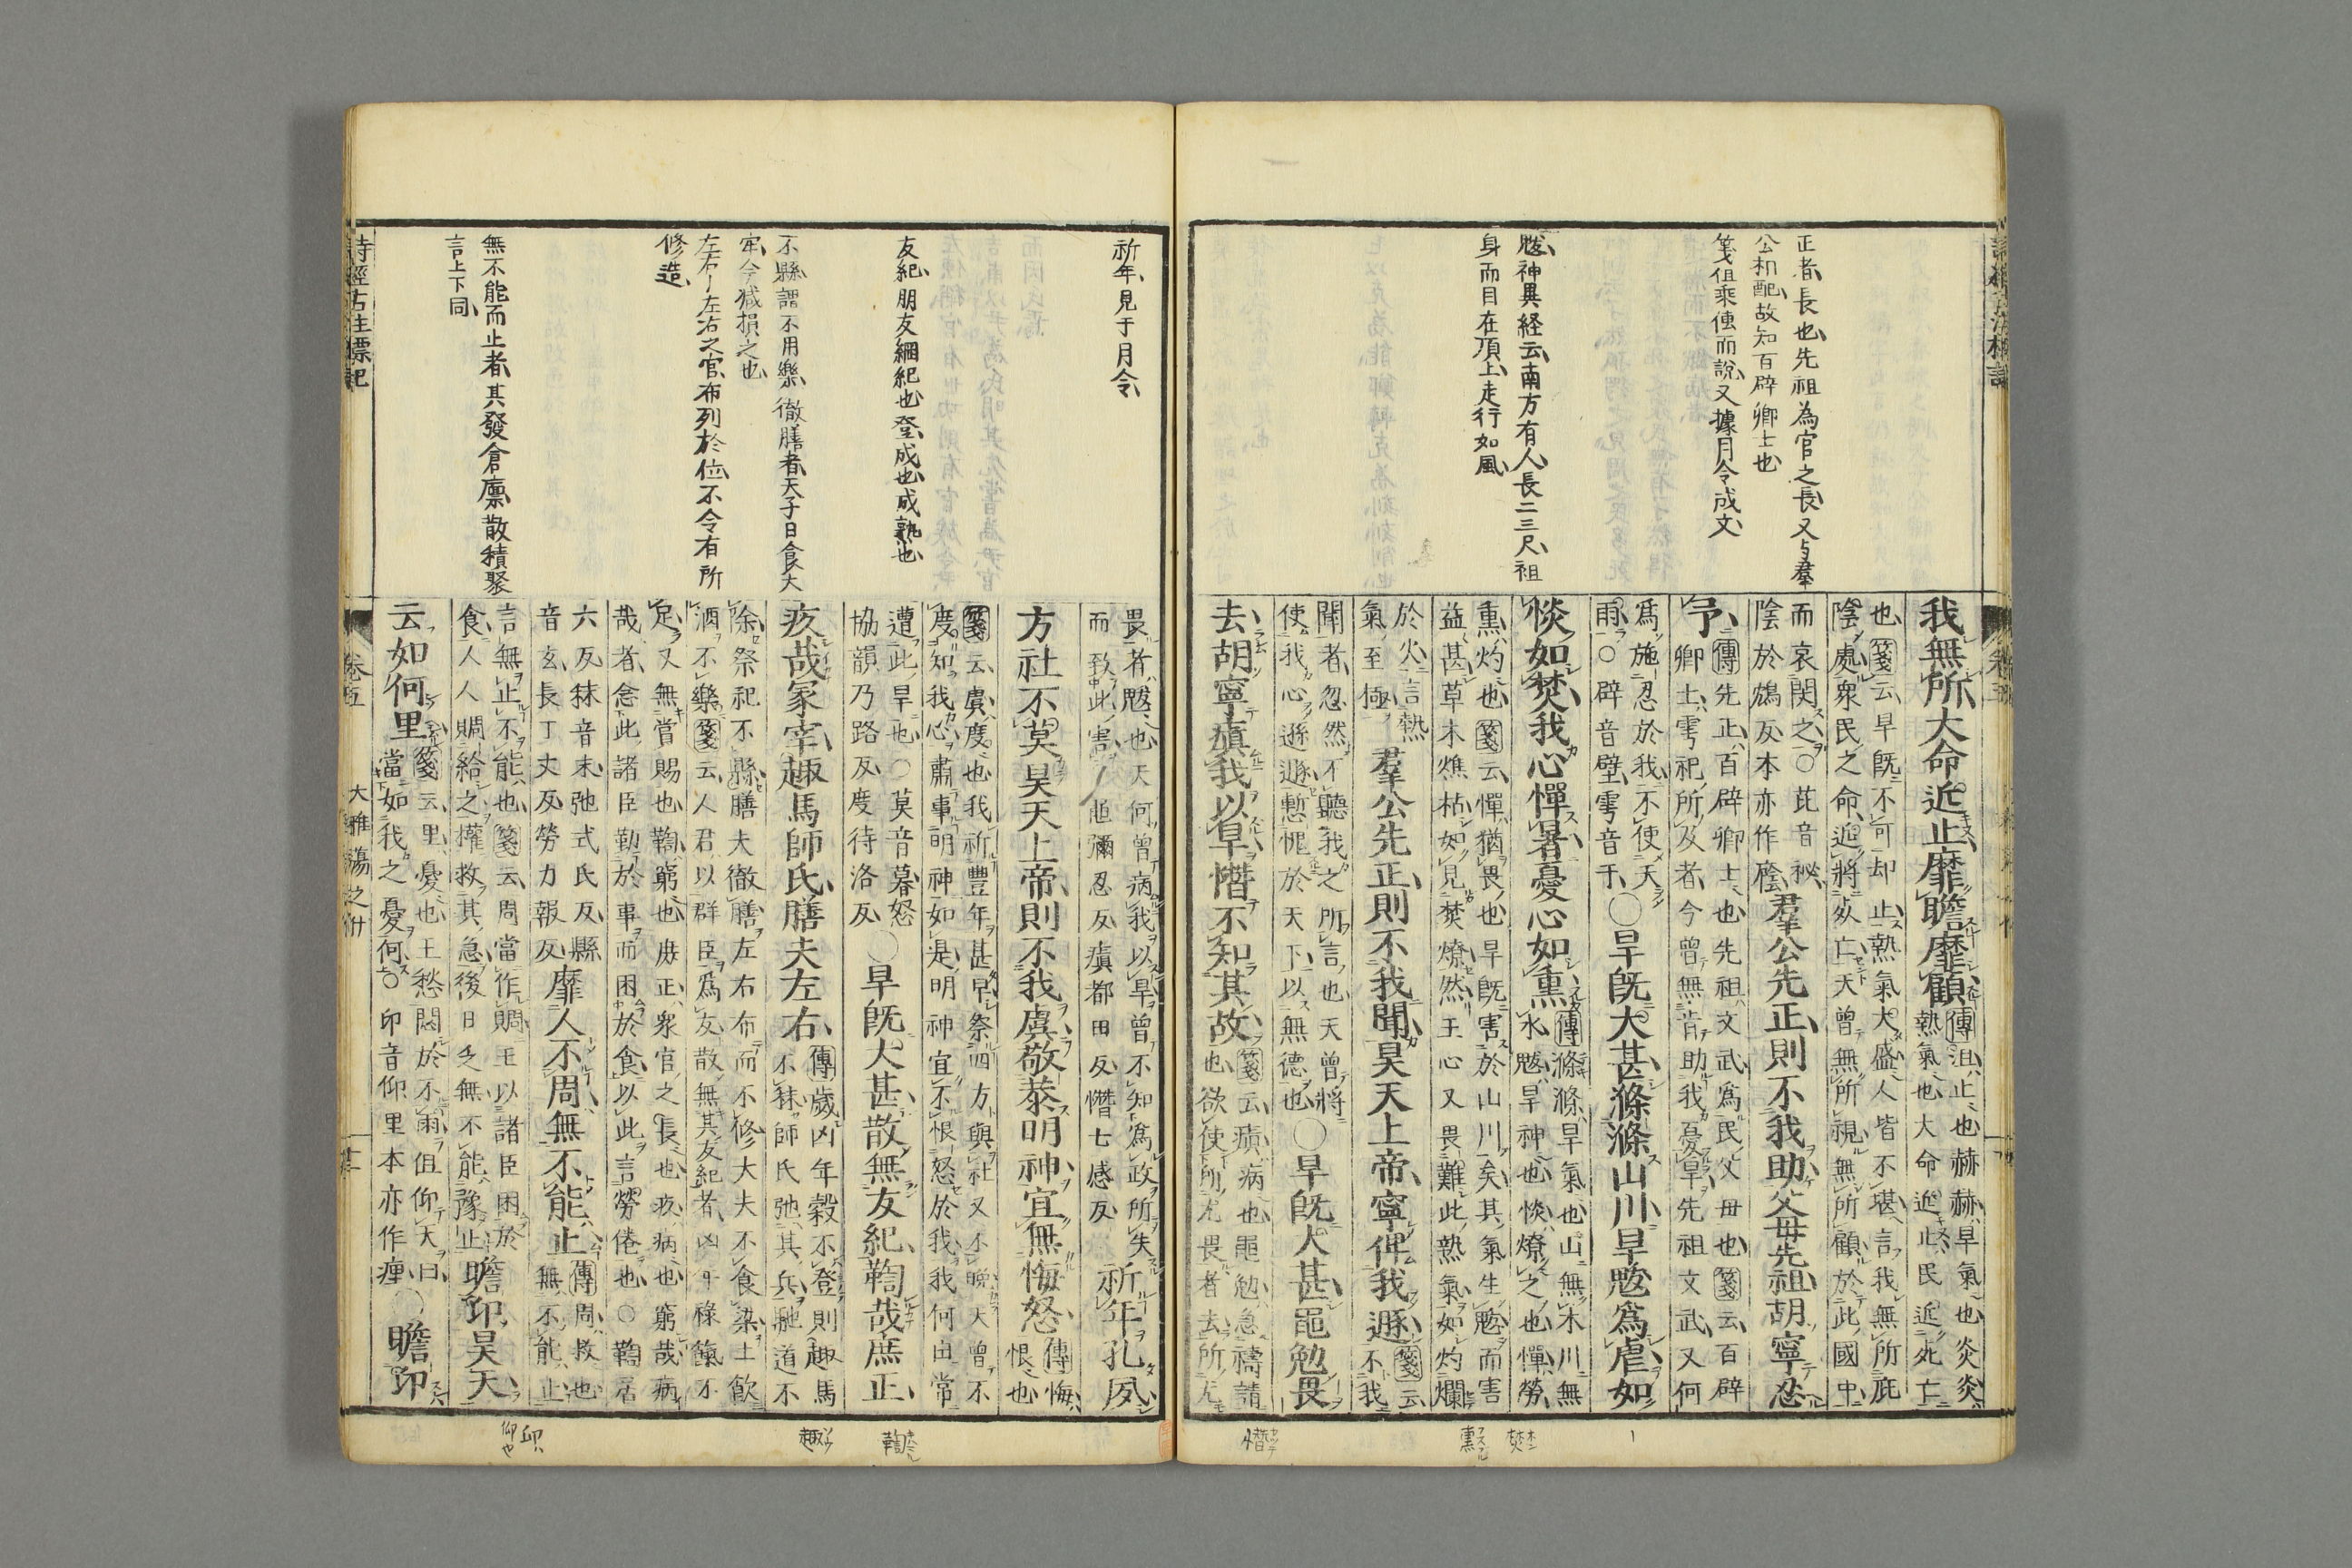 正者長也先祖為官之長又与羣
公相配故知百辟卿士也
箋但乘傳而說又據月令成文
魃神異経云南方有人長二三尺祖
身而目在頂上走行如風
我無所大命近止靡瞻靡顧傳沮止也赫赫旱氣也炎炎
熱氣也大命近止民近死亡
也箋云旱既不可却止熱氣大盛人皆不堪言我無所庇
陰處衆民之命近將死亡天曾無所視無所顧於此國中
而哀閔之○芘音祕
陰於鴆反本亦作䕃
羣公先正則不我助父母先祖胡寧忍
予傳先正百辟卿士也先祖文武爲民父母也箋云百辟
卿士雩祀所及者今曾無肯助我憂旱先祖文武又何
爲施忍於我不使天
雨○辟音壁雩音于
○旱既大甚滌滌山川旱魃爲虐如
惔如焚我心憚暑憂心如熏傳滌滌旱氣也山無木川無
水魃旱神也惔燎之也憚勞
熏灼也箋云憚猶畏也旱既害於山川矣其氣生魃而害
益甚草木燋枯如見焚燎然王心又畏難此熱氣如灼爛
於火言熱
氣至極
羣公先正則不我聞昊天上帝寧俾我遯箋云不我
聞者忽然不聽我之所言也天曾將
使我心遜遯慙愧於天下以無德也○旱既大甚黽勉畏
去胡寧瘨我以旱憯不知其故箋云瘨病也黽勉急禱請
也欲使所尤畏者去所尤
憯
熏
焚
祈年見于月令
友紀朋友綱紀也登成也成熟也
不縣謂不用樂徹膳者天子日食大
牢今減損之也
左右ー左右之官布列於位不令有所
修造
無不能而止者其發倉廩散積聚
言上下同
畏者魃也天何曾病我以旱曾不知爲政所失
而致此害○黽彌忍反瘨都田反憯七感反
祈年孔夙
方社不莫昊天上帝則不我虞敬恭明神宜無悔怒傳悔
恨也
箋云虞度也我祈豐年甚早祭四方與社又不晚天曾不
度知我心肅事明神如是明神宜不恨怒於我我何由常
遭此旱也○莫音暮怒
協韻乃路反度待洛反
○旱既大甚散無友紀鞫哉庶正
疚哉冢宰趣馬師氏膳夫左右傳歲凶年穀不登則趣馬
不秣師氏弛其兵馳道不
除祭祀不縣膳夫徹膳左右布而不修大夫不食粱士飲
酒不樂箋云人君以群臣爲友散無其友紀者凶年祿餼不
足又無賞賜也鞫窮也庶正衆官之長也疚病也窮哉病
哉者念此諸臣勤於事而困於食以此言勞倦也○鞫居
六反秣音末弛式氏反縣
音玄長丁丈反勞力報反
靡人不周無不能止傳周救也
無不能止
言無止不能也箋云周當作賙王以諸臣困於
食人人賙給之權救其急後日乏無不能豫止
瞻卬昊天
云如何里箋云里憂也王愁悶於不雨但仰天曰
當如我之憂何○卬音仰里本亦作㾖
○瞻卬
詩經古注標記
卷五
大雅 蕩之什
鞫
趣
卬
仰也